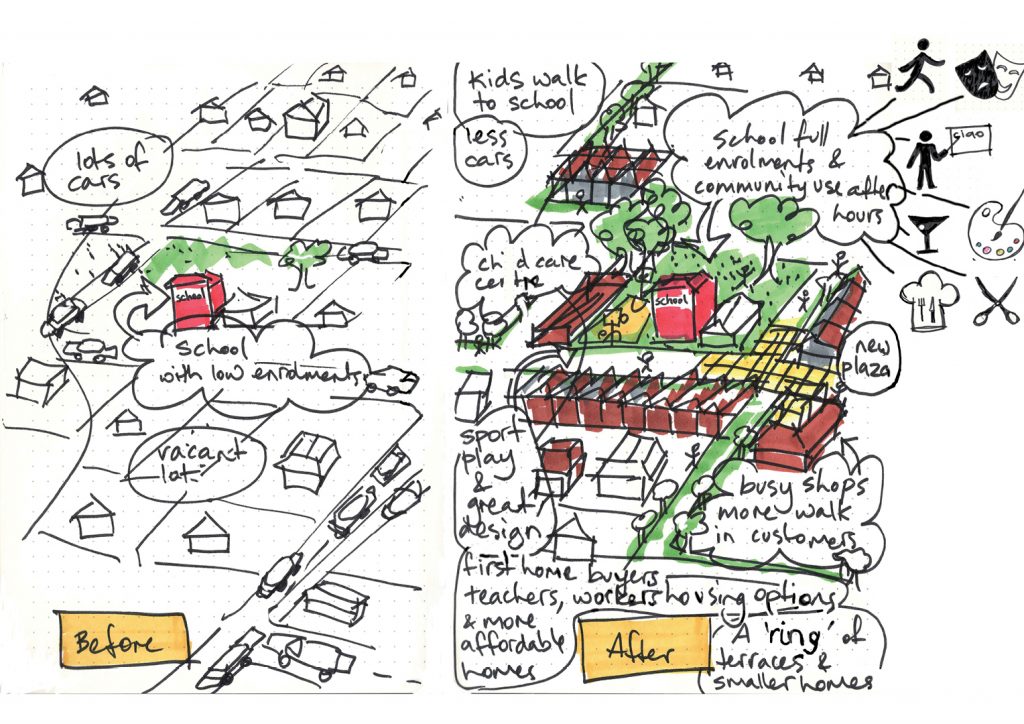 lots of
cars
school
school
with low enrolments
vacant
lot
Before
kids walk
to school
less
cars
school full
enrolments &
community use after
hours
ciao
child care
centre
school
new
plaza
sport
play
&
great
design
busy shops
more walk
in customers
first home buyers
teachers, workers housing options
& more
affordable
homes
After
A 'ring' of
terraces &
smaller homes